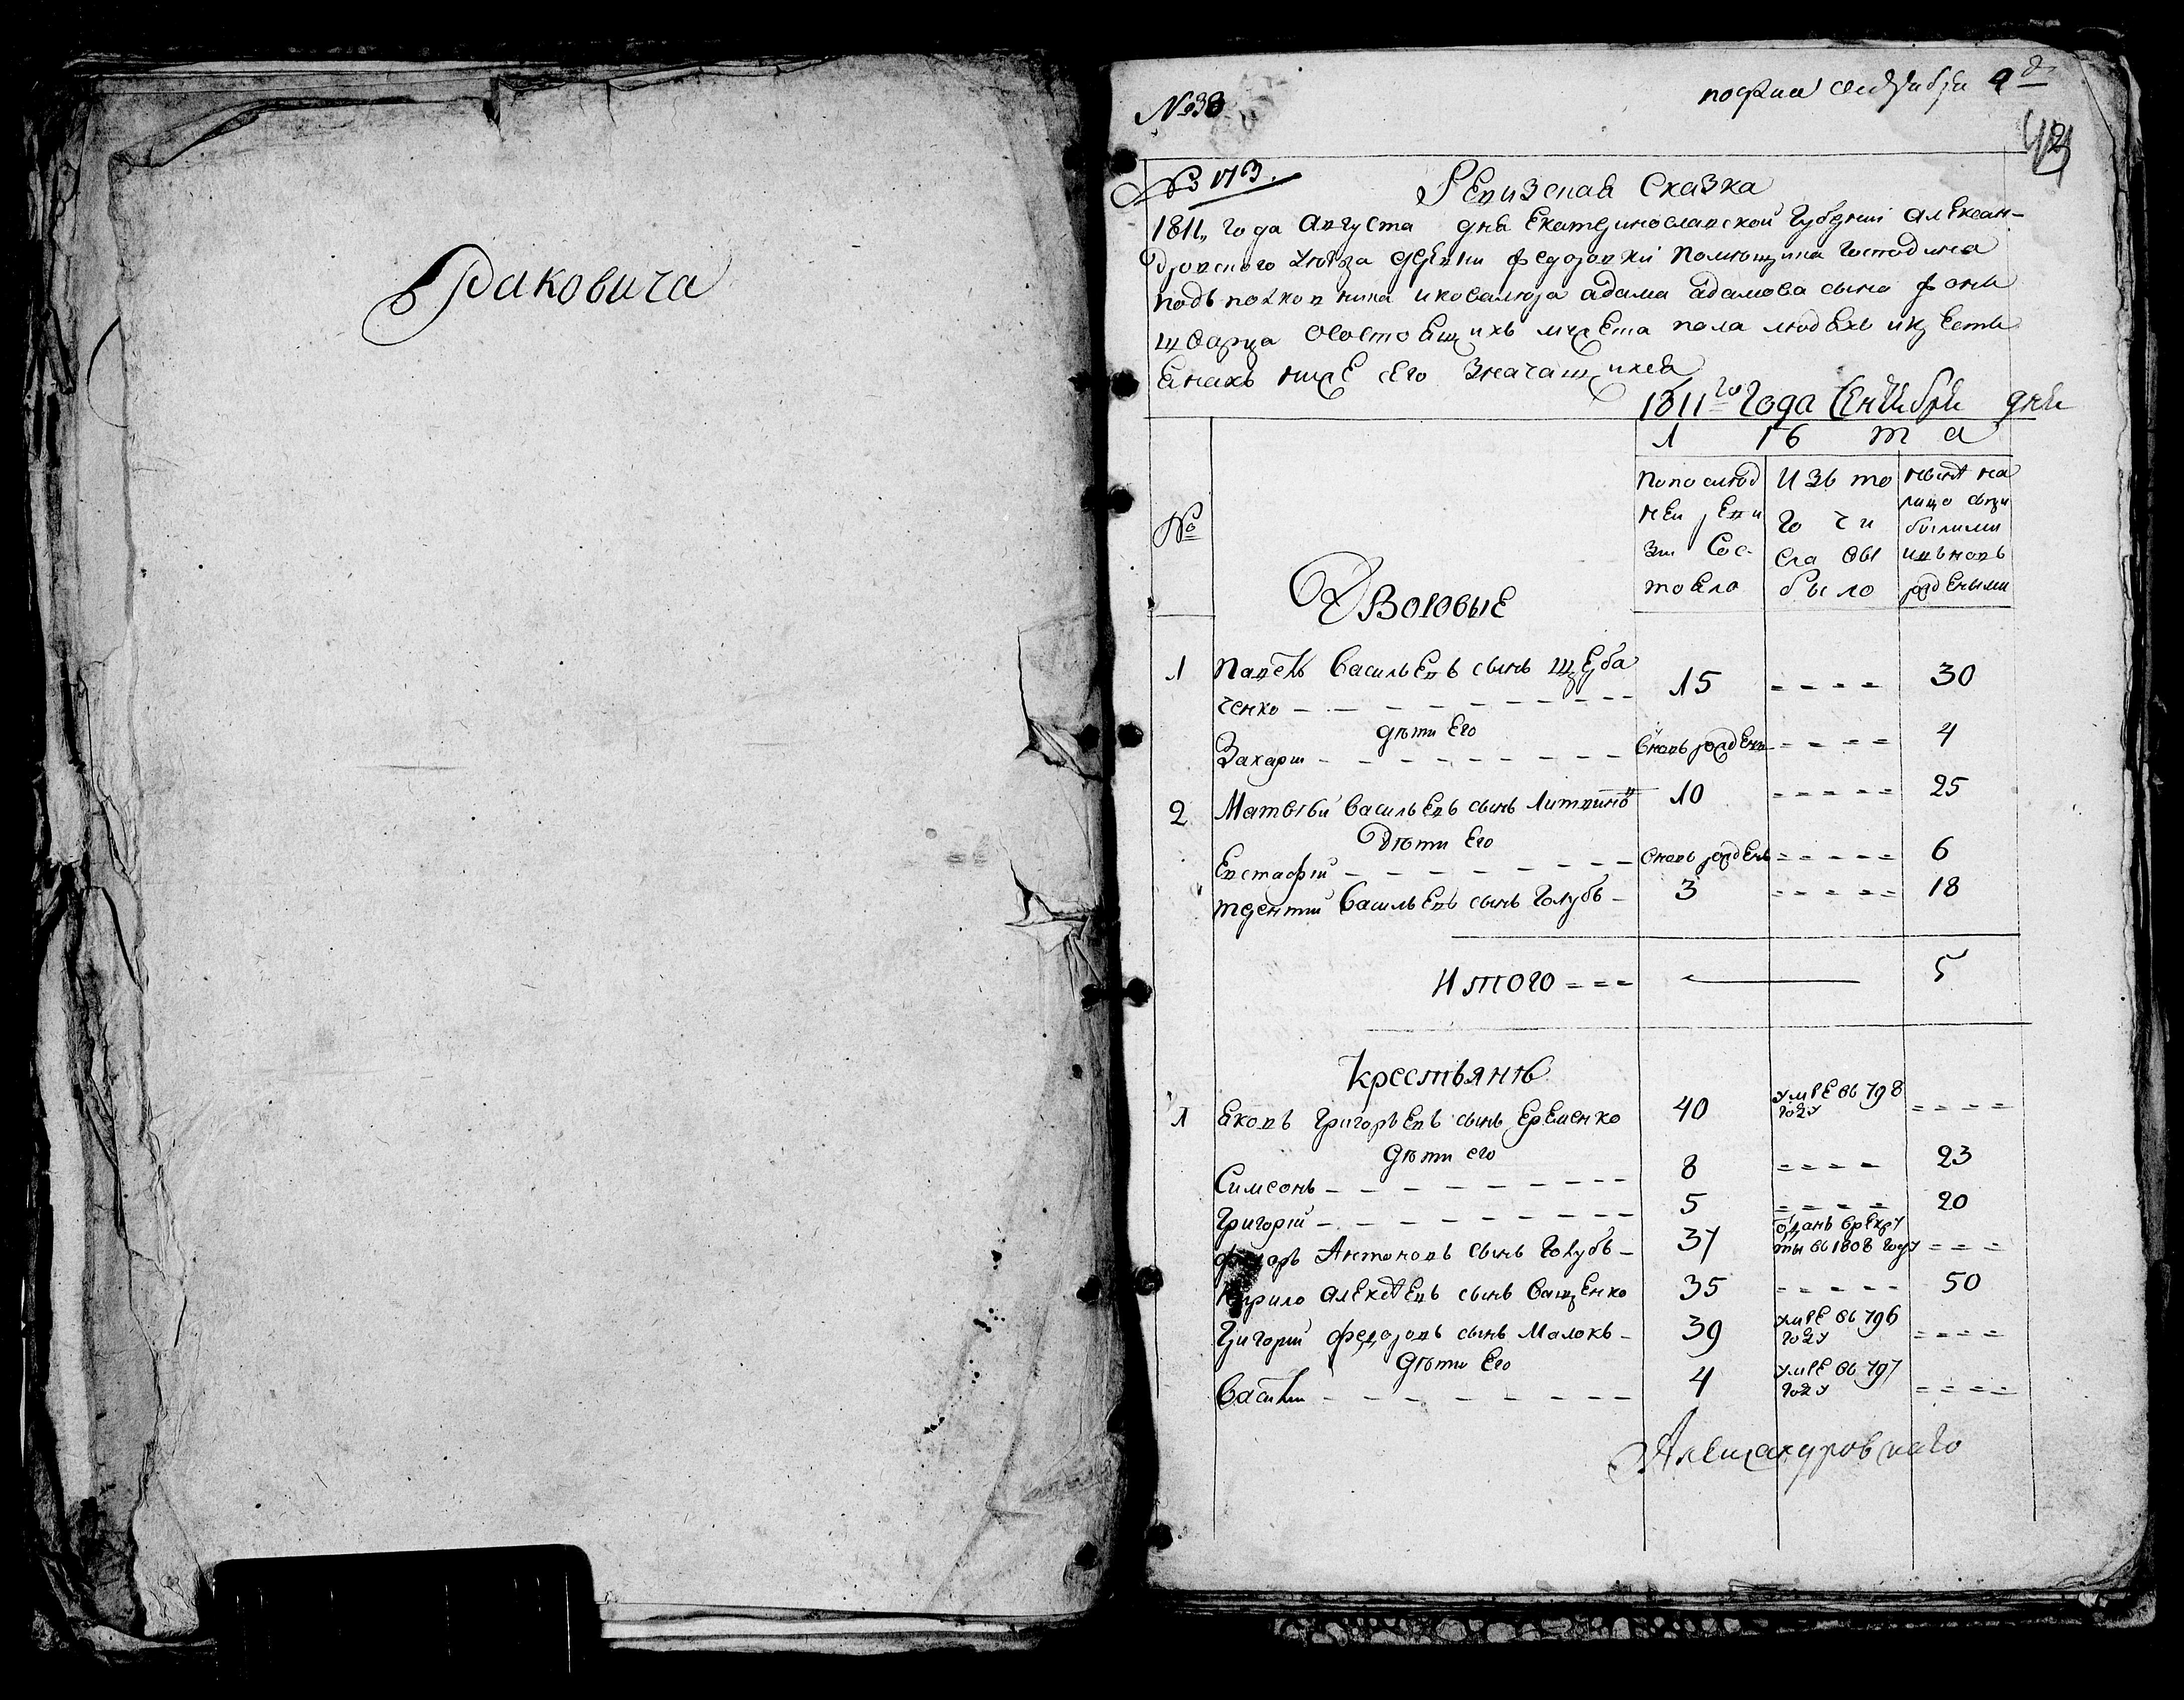 Раковича
№38
подана сентября 9 д.
№ 173.
Ревизская Сказка
1811, года августа дня Екатеринославской Губернии алексан-
дровского уезда деревни федоровки помющика господина
подъполковника и ковалюра адама адамова сына фонъ
щварца осостоящихъ мужеска пола людехъ и крестъ
янахъ ниже сего значащихся
1811го Года Сентября дня
№
Л ѣ т а
Дворовые
попослюд ней реви зии Сос- тояло
Изъ то го чи сла вы было
нынѣ на лицо съпри былыми ивьновь рождеными
1 Павелъ Васильевъ сынъ щерба
ченко 15 30
дѣти Его
Захарий вновь рожденъ 4
2 Матвѣй Васильевъ сынъ Литвиновъ 10 25
Дѣти Его
Евстафий вновь рожденъ 6
терентий Васильевъ сынъ Голубъ 3 18
Итого 5
Крестьянѣ
1 Яковъ Григорьевъ сынъ Еременко 40 умре въ 798
году
Дѣти его
Симеонъ 8 23
Григорий 5 20
федоръ Антоновъ сынъ Голубъ 37 отданъ врекру
ты въ 1808 году
Кирило алексѣевъ сынъ Ващенко 35 50
Григорий федоровъ сынъ Малокъ 39 умре въ 796
году
Дѣти Его
Василий 4 умре въ 797
году
Александровскаго